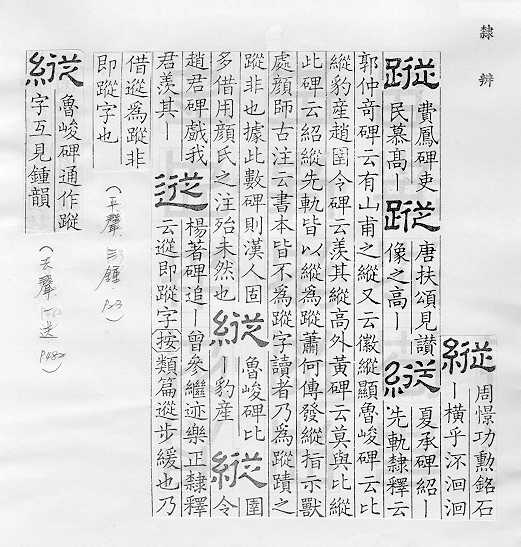 隸辨
縱
周憬功勳銘石
ー橫乎㳅洄洄
蹤
費鳳碑吏
民慕高ー
蹤
唐扶頌見讃
像之高ー
縱
夏承碑紹ー
先軌隸釋云
郭仲奇碑云有山甫之縱又云徽縱顯魯峻碑云比
縱豹產趙圉令碑云羨其縱高外黃碑云莫與比縱
此碑云紹縱先軌皆以縱為蹤蕭何傳發縱指示獸
處顏師古注云書本皆不為蹤字讀者乃為蹤蹟之
蹤非也據此數碑則漢人固
多借用顏氏之注殆未然也
縱
魯峻碑比
ー豹產
縱
圉令
趙君碑戲我
君羨其ー
楊著碑追ー曾參繼迹樂正隸釋
云蹤即蹤字按類篇蹤步緩也乃
借蹤為蹤非
即蹤字也
(平聲 三鍾 P23)
縱
魯峻碑通作蹤
字互見鍾韻
(去聲 送 P482)